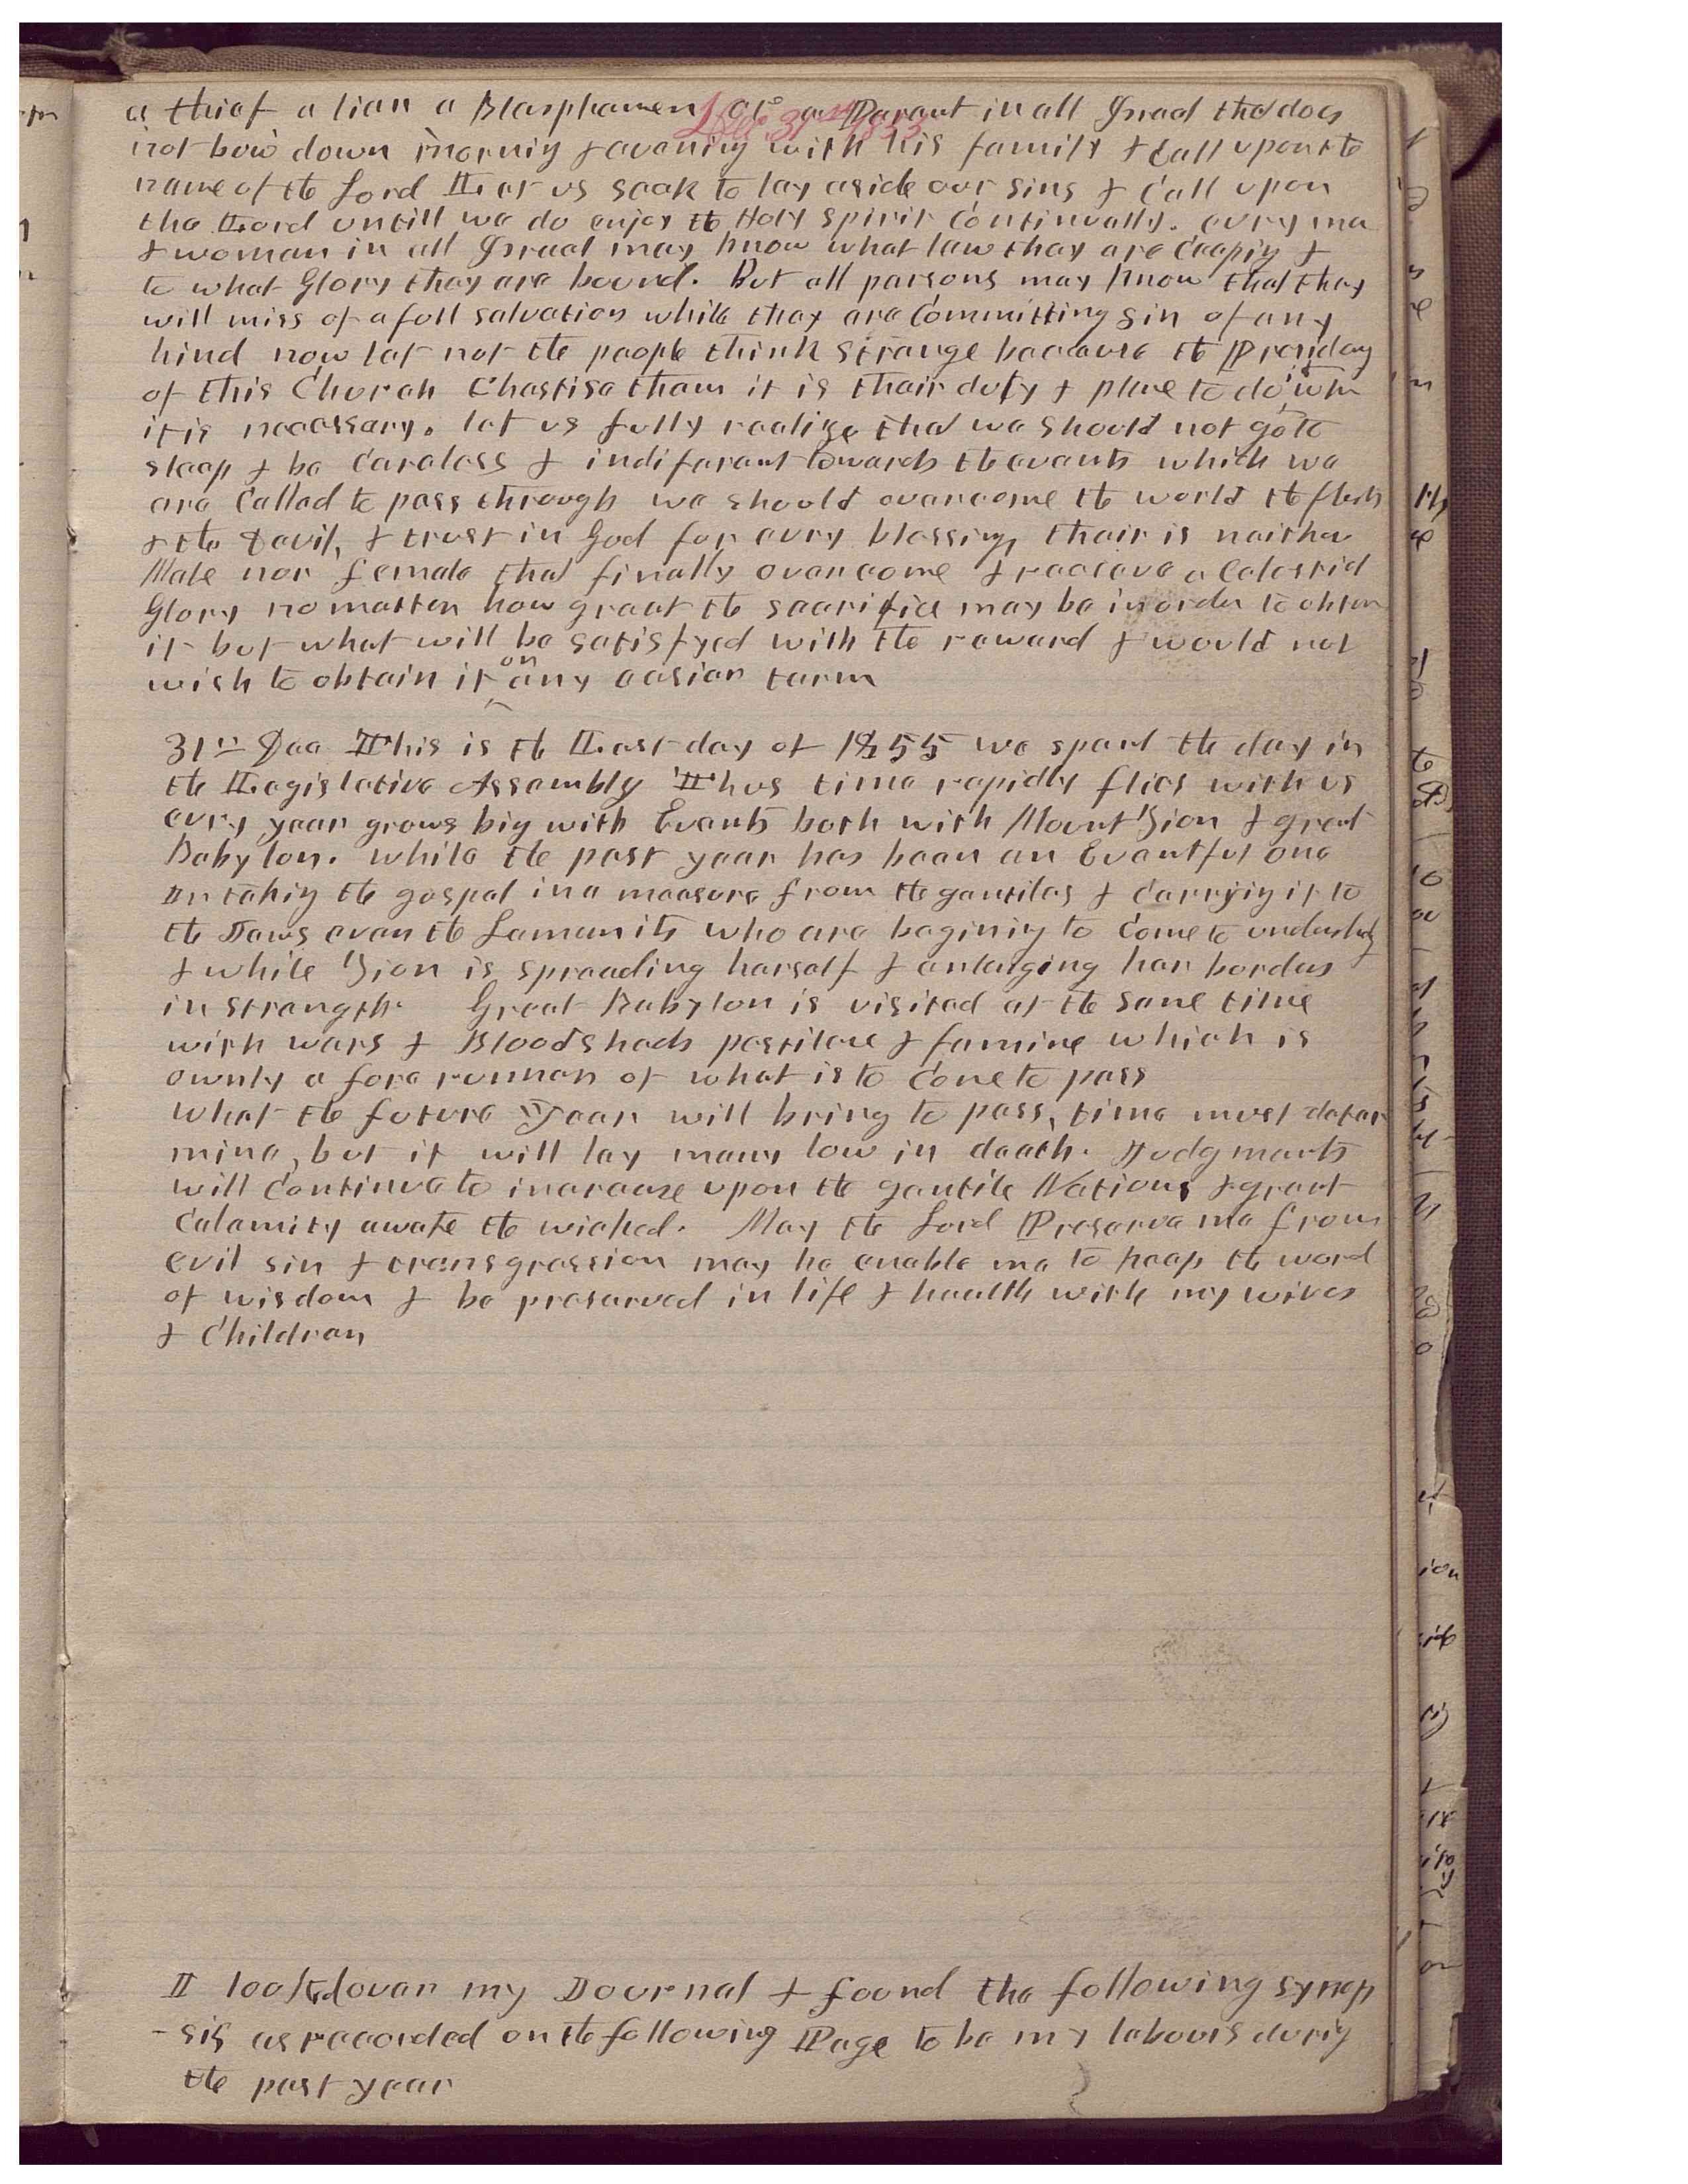 a thief a liar a Blasphemer or a Parent in all Israel that does
Dec. 31st 1855
not bow down morning & evening with his family & Call upon the
name of the Lord Let us seek to lay aside our sins & Call upon
the Lord untill we do enjoy the Holy spirit Continually. evry man
& woman in all Israel may know what law they are keeping &
to what Glory they are bound. But all persons may know that they
will miss of a full salvation while they are Committing sin of any
kind now let not the people think strange because the Presidency
of this Church Chastise them it is their duty & place to do it when
it is necessary. let us fully realize that we should not go to
sleep & be Careless & indiferent towards the events which we
are Called to pass through we should overcome the world the flesh
& the Devil, & trust in God for evry blessing, their is neither
Male nor female that finally overcome & receive a Celestial
Glory no matter how great the sacrifice may be in order to obtain
it but what will be satisfyed with the reward & would not
wish to obtain it on any easier term
31st Dec This is the Last day of 1855 we spent the day in
the Legislative Assembly Thus time rapidly flies with us
evry year grows big with Events both with Mount Zion & great
Babylon. while the past year has been an Eventful one
In taking the gospel in a measure from the gentiles & Carrying it to
the Jews even the Lamanits who are begining to Come to understanding
& while Zion is spreading herself & enlarging her borders
in strength. Great Babylon is visited at the same time
with wars & Bloodsheds pestilence & famine which is
ownly a fore runner of what is to Come to pass
What the future Year will bring to pass, time must deter
mine, but it will lay many low in death. Judgments
will Continue to increase upon the gentile Nations & great
Calamity awate the wicked. May the Lord Preserve me from
evil sin & transgression may he enable me to keep the word
of wisdom & be preserved in life & health with my wives
& Children
I looked over my Journal & found the following synop
-sis as recorded on the following Page to be my labours during
the past year